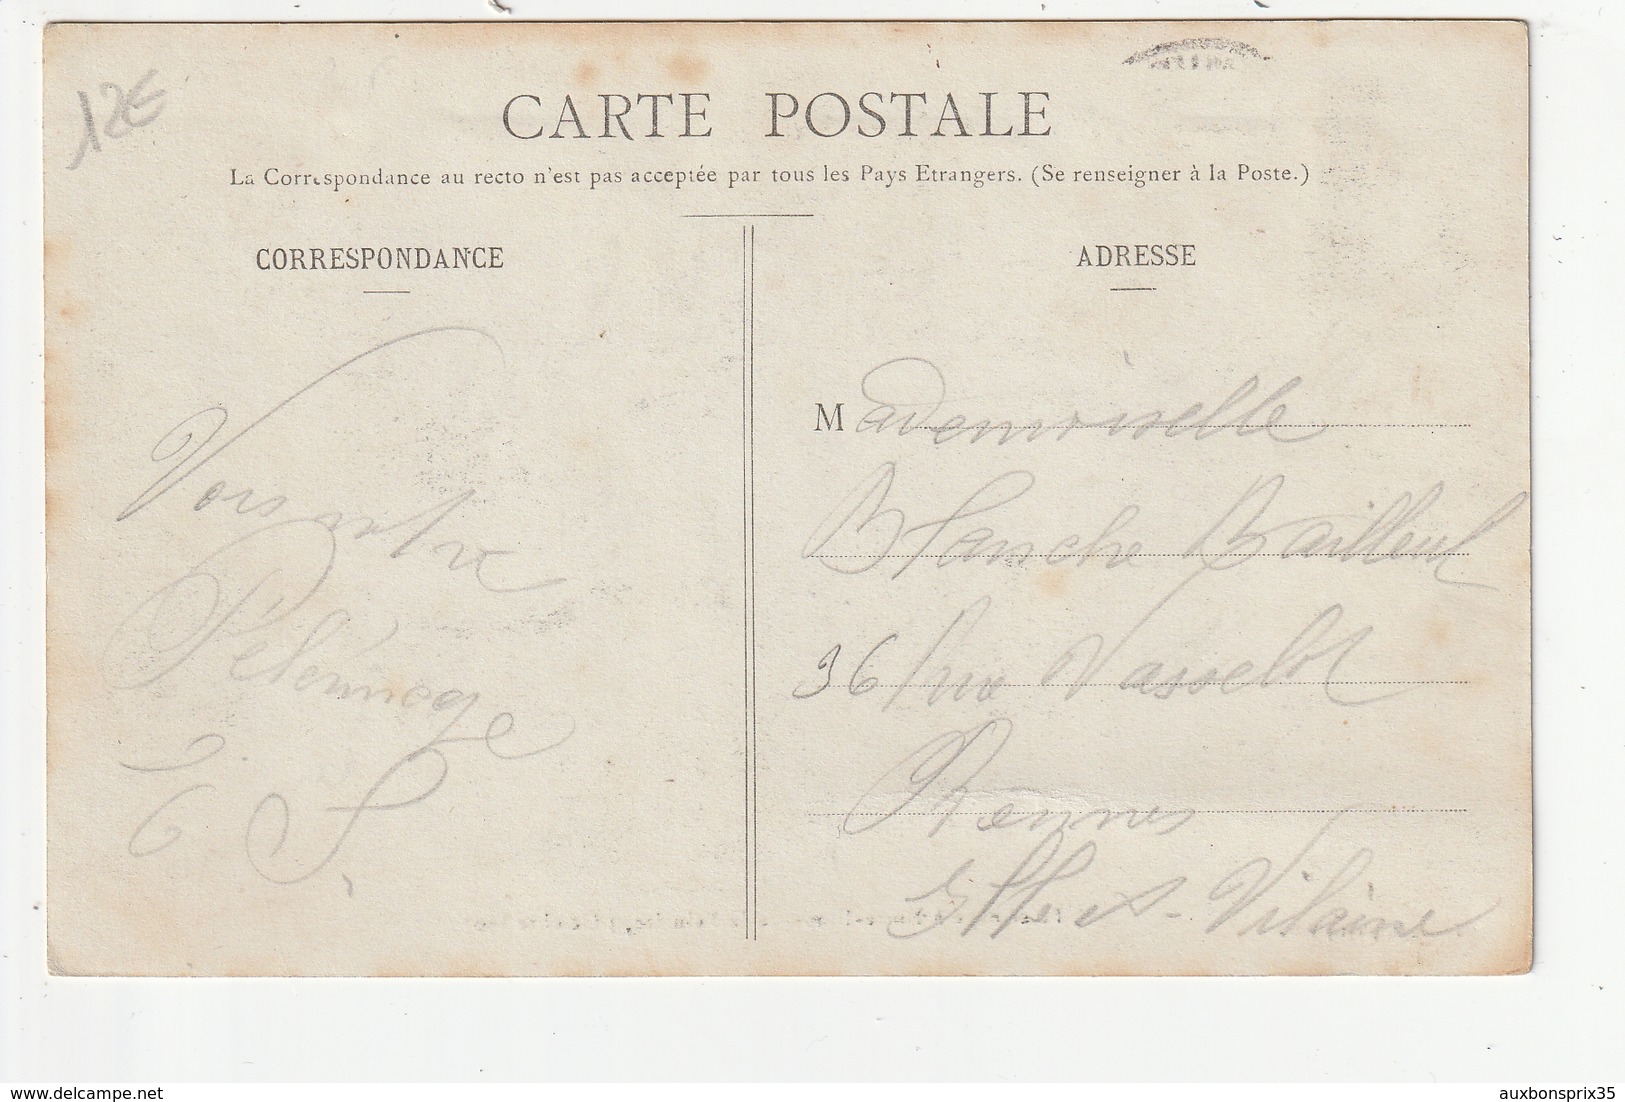 12€
CARTE POSTALE
La Correspondance au recto n'est pas acceptée par tous les Pays Etrangers. (Se renseigner à la Poste.)
CORRESPONDANCE
Vois notre
Pélérinage
ADRESSE
Mademoiselle
Blanche Bailleul
36 rue Vasselot
Rennes
Ille et-Vilaine
www.delcampe.net
auxbonsprix35